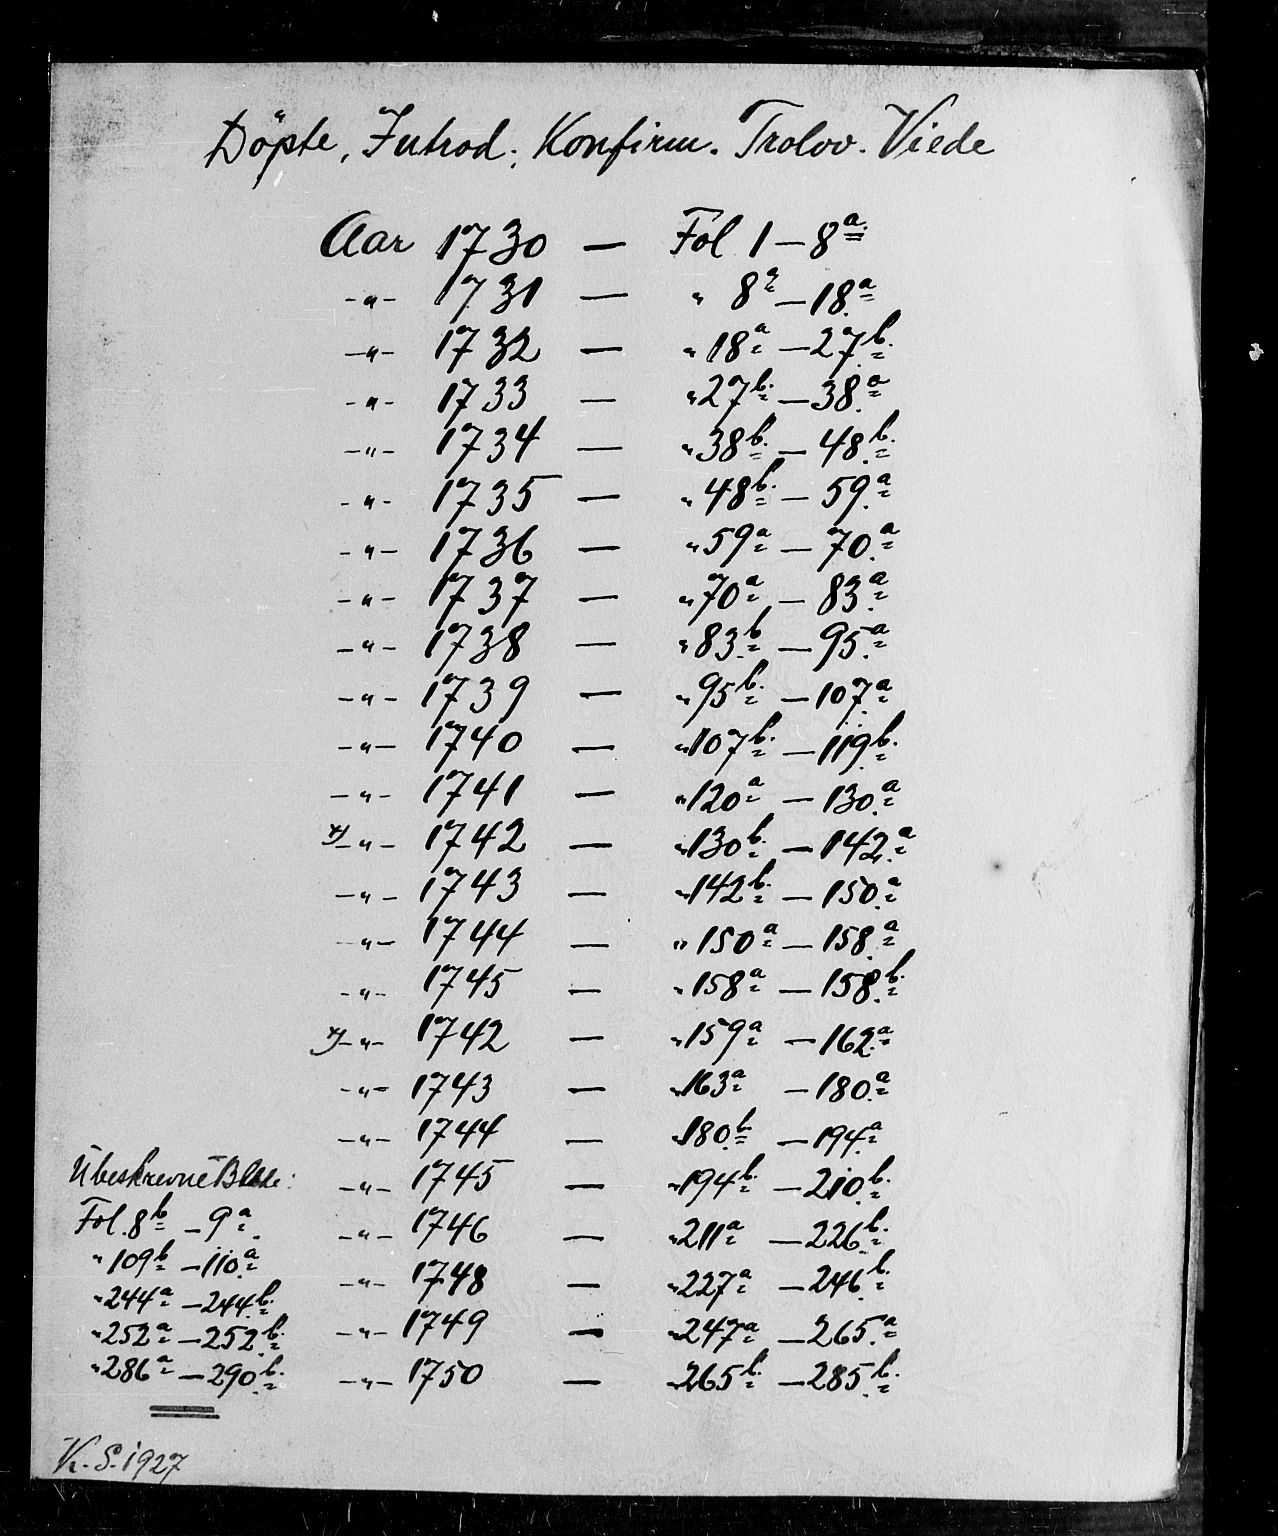 Döpte, Introd. Konfirm. Trolov. Viede
Aar 1730 — Fol 1 — 8a
-"- 1731 — " 8a — 18a
-"- 1732 — " 18a — 27b.
-"- 1733 — " 27b. — 38a
-"- 1734 — " 38b. — 48b.
-"- 1735 — " 48b. — 59a
-"- 1736 — " 59a — 70a
-"- 1737 — " 70a — 83a
-"- 1738 — " 83b — 95a
-"- 1739 — " 95b. — 107a
-"- 1740 — " 107b. — 119b.
-"- 1741 — " 120a — 130a
x) -"- 1742 — " 130b. — 142a
-"- 1743 — " 142b. — 150a
-"- 1744 — " 150a — 158a
-"- 1745 — " 158a — 158b.
x) -"- 1742 — " 159a — 162a
-"- 1743 — " 163a — 180a
-"- 1744 — " 180b — 194a
-"- 1745 — " 194b — 210b.
-"- 1746 — " 211a — 226b.
-"- 1748 — " 227a — 246b.
-"- 1749 — " 247a — 265a
-"- 1750 — " 265b. — 285b.
Ubeskrevne Blade:
Fol. 8b — 9a
" 109b — 110a
" 244a — 244b.
" 252a — 252b.
" 286a — 290b.
K. S. 1927